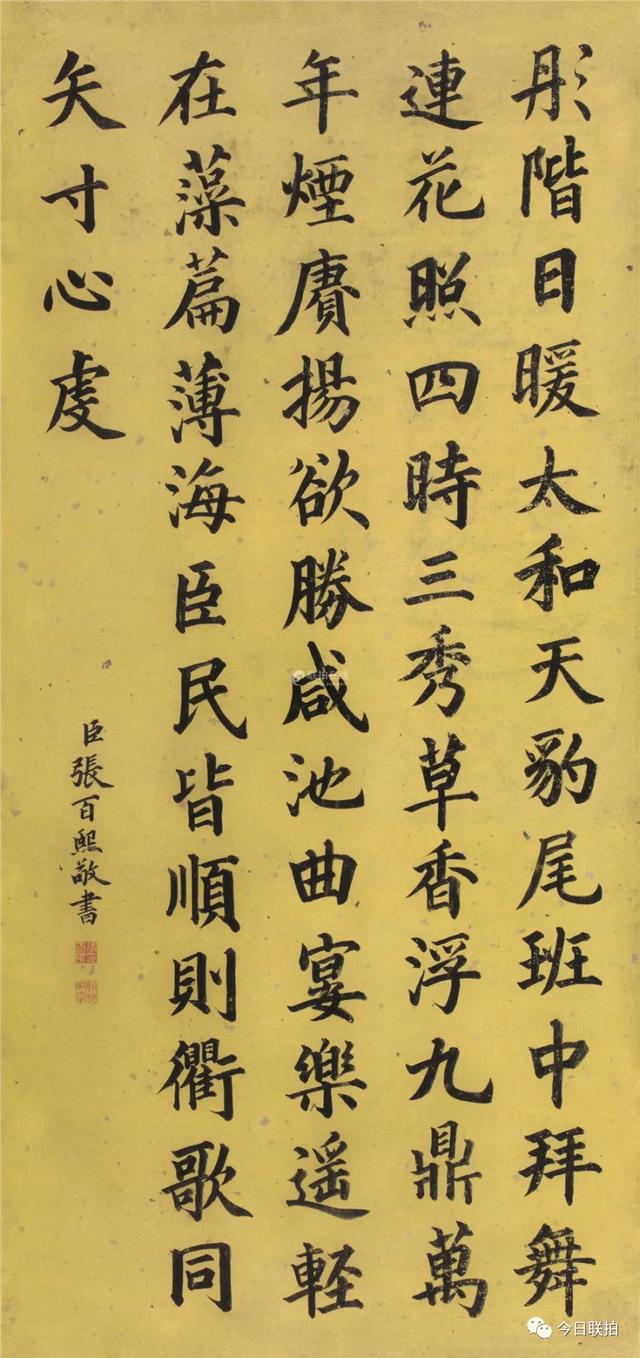 彤階日暖太和天豹尾班中拜舞
連花照四時三秀草香浮九鼎萬
年煙賡揚欲勝咸池曲宴樂遥軽
在藻篇薄海臣民皆順則衢歌同
矢寸心虔
臣張百熙敬書
联拍
今日联拍